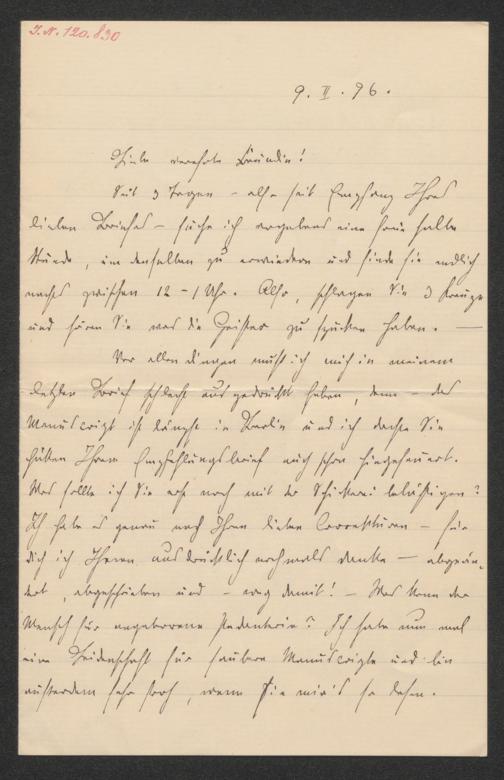 J.N. 120.830
9. II. 96.
Liebe verehrte Freundin!
Seit 3 Tagen – also seit Empfang Ihres
lieben Briefes – suche ich vergebens eine freie halbe
Stunde, um denselben zu erwiedern und finde sie endlich
nachts zwischen 12 – 1 Uhr. Also, schlagen Sie 3 Kreuze
und hören Sie was die Geister zu spuken haben. —
Vor allen Dingen muß ich mich in meinem
letzten Brief schlecht ausgedrückt haben, denn – das
Manuscript ist längst in Berlin und ich dachte Sie
hätten Ihren Empfehlungsbrief auch schon hingefeuert.
Was sollte ich Sie erst noch mit der Schickerei belästigen?
Ich habe es genau nach Ihren lieben Correkturen – für
die ich Ihnen ausdrücklich nochmals danke – abgeän-
dert, abgeschrieben und – weg damit! – Was kann der
Mensch für angeborene Pedanterie? Ich habe nun mal
eine Leidenschaft für saubere Manuscripte und bin
außerdem sehr froh, wenn Sie mir's so lesen.